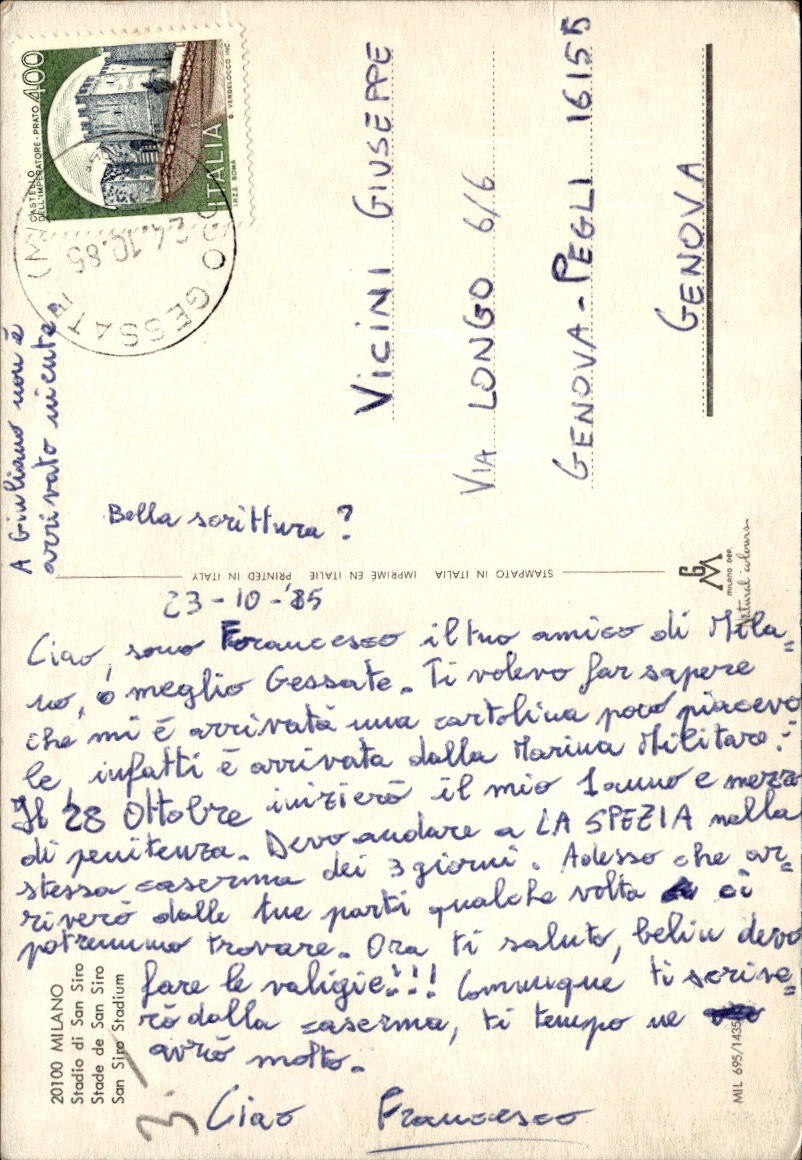 CASTELLO
DELL'IMPERATORE - PRATO 400
ITALIA
I.P.Z.S. ROMA
D. VERDELOCCO INC.
GESSATE (MI)
24.10.85
VICINI GIUSEPPE
VIA LONGO 6/6
GENOVA-PEGLI 16155
GENOVA
A Giuliano non è
arrivato niente.
Bella scrittura?
STAMPATO IN ITALIA IMPRIMÉ EN ITALIE PRINTED IN ITALY
GM
MILANO DEP.
Natural colours
23-10-'85
Ciao, sono Francesco il tuo amico di Mila=
no, o meglio Gessate. Ti volevo far sapere
che mi è arrivata una cartolina poco piacevo=
le, infatti è arrivata dalla Marina Militare.
Il 28 Ottobre inizierò il mio 1 anno e mezzo
di penitenza. Devo andare a LA SPEZIA nella
stessa caserma dei 3 giorni. Adesso che ar=
riverò dalle tue parti qualche volta ci
potremmo trovare. Ora ti saluto, belin devo
fare le valigie!!! Comunque ti scrive=
rò dalla caserma, ti tempo ne
avrò molto.
Ciao Francesco
20100 MILANO
Stadio di San Siro
Stade de San Siro
San Siro Stadium
MIL 695/1435